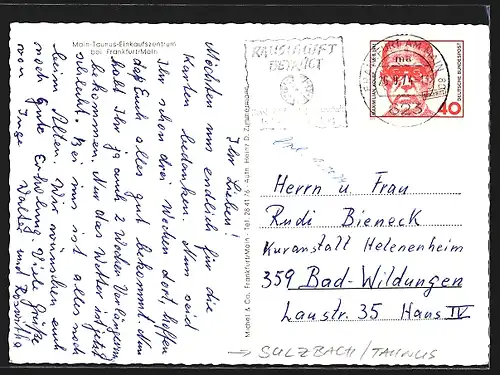 Main-Taunus-Einkaufszentrum
bei Frankfurt/Main
Ihr Lieben!
Möchten uns endlich für die
Karten bedanken. Nun seid
Ihr schon drei Wochen dort, hoffen
daß Euch alles gut bekommt. Nun
habt Ihr ja auch 2 Wochen Verlängerung
bekommen. Nur das Wetter ist jetzt
schlecht. Bei uns ist alles noch
beim Alten. Wir wünschen euch
noch gute Erholung. Viele Grüße
von
Walter und Roswitha
Michel & Co., Frankfurt/Main - Tel. 28 41 76 - Aufn. Heinz D.
FRANKFURT AM MAIN
623
DEUTSCHE BUNDESPOST
40
Herrn u Frau
Rudi Bieneck
Kuranstalt Helenenheim
359 Bad-Wildungen
Laustr. 35 Haus IV
→ SULZBACH/TAUNUS